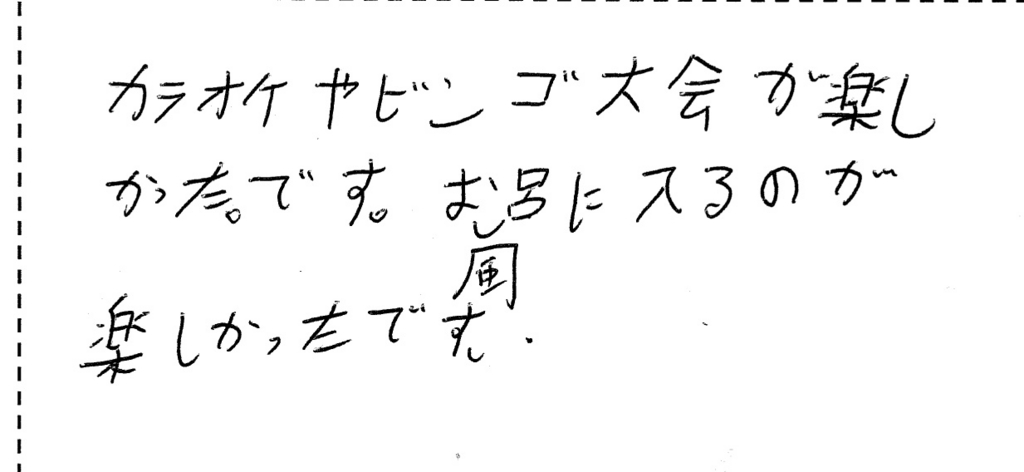 カラオケやビンゴ大会が楽し
かった。です。お風呂に入るのが
楽しかったです.